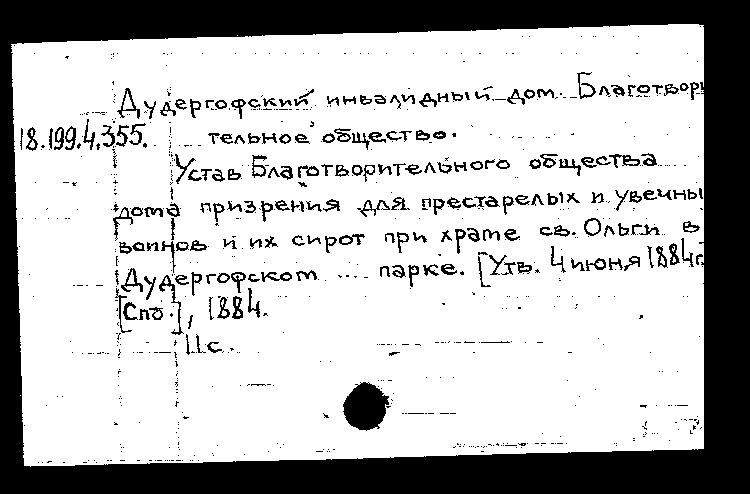 Дудергофский инвалидный дом. Благотвори
18.199.4.355. тельное общество.
Устав Благотворительного общества
дома призрения для престарелых и увечны
воинов и их сирот при храме св. Ольги в
Дудергофском ... парке. [Утв. 4 июня 1884 г.]
[Спб.], 1884.
11 с.